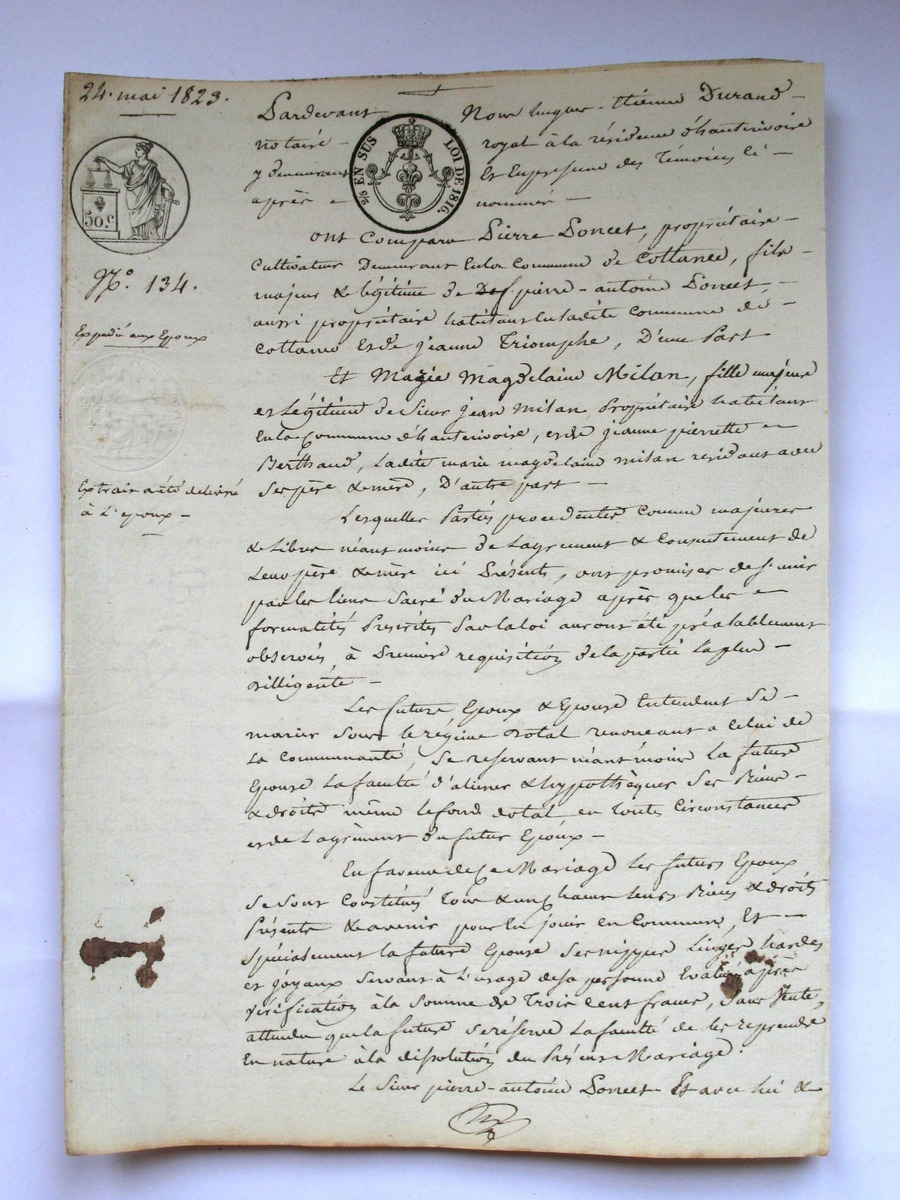 24. mai 1823.
Pardevant Nous hugues-Etienne Durand
notaire royal à la résidence d'hauterivoire
y demeurant Et En presence des Temoins Ci
après nommés
50.c
25 EN SUS LOI DE 1816.
N.o 134.
Expedié aux Epoux
Extrait a été délivré
à L'epoux
ont Comparu Pierre Poncet, propriétaire
Cultivateur Demeurant En la Commune de Cottance, fils
majeur & légitime de pierre-antoine Poncet,
aussi propriétaire habitant En ladite Commune de
Cottance Et de jeanne Triomphe, D'une Part
Et Marie Magdelaine Milan, fille majeure
et Légitime de Sieur jean milan Propriétaire habitant
En la Commune d'hauterivoire, et de jeanne pierrette
Berthaud, Ladite marie magdelaine milan residant avec
Ses père & mère, D'autre part
Lesquelles Parties procedentes Comme majeures
& Libres néantmoins de Lagrement & Consentement de
Leurs père & mère ici Présents, ont promises de S'unir
par les liens Sacré du Mariage après que les
formalités Prescrites Par la loi auront été préalablement
observés, à Première requisition de la partie La plus
dilligente
Les futurs Epoux & Epouse Entendent Se
marier Sous le régime Dotal renonçant a Celui de
La Communauté, Se reservant néantmoins La future
Epouse La faculté d'aliéner & hypothèquer Ses Biens
& droits même le fond dotal, en Toutes Circonstances
et de Lagrèment du futur Epoux
En faveur de Ce Mariage Les futurs Epoux
Se Sont Constitués Tous & un chacun leurs Biens & droits
Présents & avenir pour En jouir en Commun, Et
Spécialement la future Epouse Ses nippes Linges hardes
et joyaux Servant à L'usage de Sa personne Evalués après
Vérification à la Somme de Trois Cent francs, Sans Vente,
attendu que la future Se réserve La faculté de les reprendre
En nature à la dissolution du Présent Mariage.
Le Sieur pierre-antoine Poncet Et avec lui &